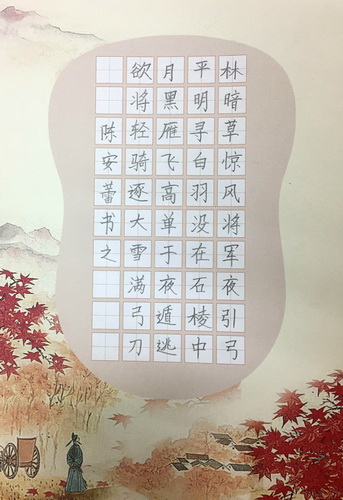 林暗草惊风将军夜引弓
平明寻白羽没在石棱中
月黑雁飞高单于夜遁逃
欲将轻骑逐大雪满弓刀
陈安蕾书之